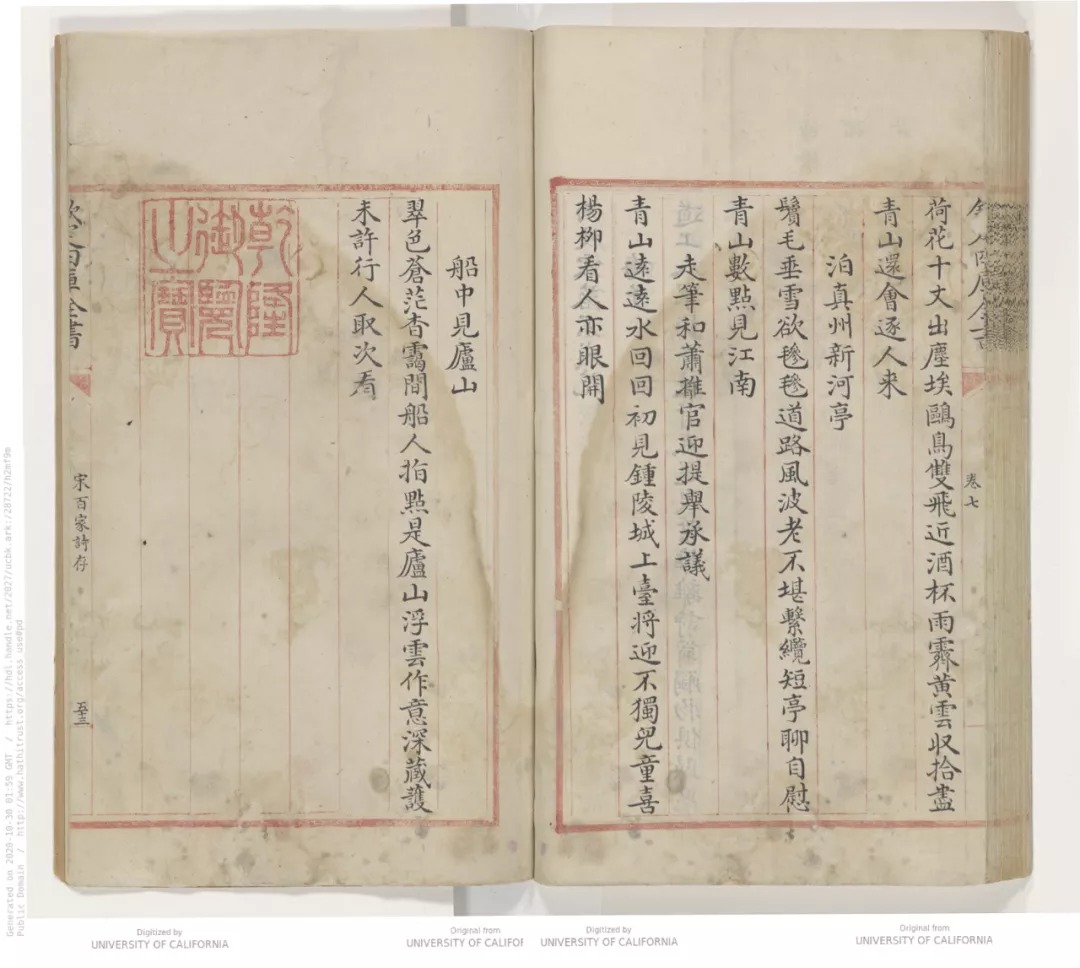 荷花十丈出塵埃鷗鳥雙飛近酒杯雨霽黄雲収拾盡
青山還會逐人来
泊真州新河亭
鬢毛垂雪欲毿毿道路風波老不堪繫纜短亭聊自慰
青山數點見江南
走筆和蕭推官迎提舉承議
青山遠遠水回回初見鍾陵城上臺将迎不獨兒童喜
楊柳看人亦眼開
卷七
船中見廬山
翠色蒼茫杳靄間船人指點是廬山浮雲作意深藏護
未許行人取次看
乾隆御覽之寶
欽定四庫全書
宋百家詩存
至三
Generated on 2020-10-30 01:59 GMT / https://hdl.handle.net/2027/ucbk.ark:/28722/h2mf9m
Public Domain / http://www.hathitrust.org/access_use#pd
Digitized by
UNIVERSITY OF CALIFORNIA
Original from
UNIVERSITY OF CALIFOR
Digitized by
UNIVERSITY OF CALIFORNIA
Original from
UNIVERSITY OF CALIFORNIA